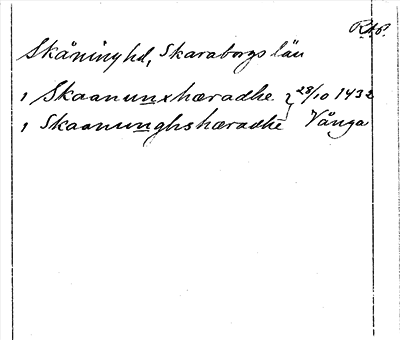 R.A.P.
Skåning hd, Skaraborgs län
1 Skaanunxhæradhe } 28/10 1432
1 Skaanunghshæradhe Vånga